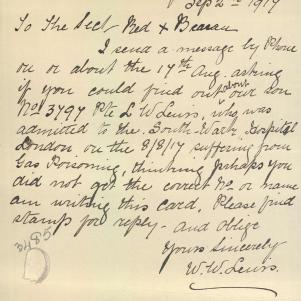 Sep 2nd 1917
To The Sect Red + Bearau
I send a message by Phone
on or about the 17th Aug. asking
if you could find out about our son
No 3797 Pte L W Lewis, who was
admitted to the South Wark Hospital
London on the 8/8/17 suffering from
Gas Poisoning, thinking perhaps you
did not get the correct No. or name
am writing this card. Please find
stamp for reply - and oblige
Yours Sincerely
W. W. Lewis.
3485